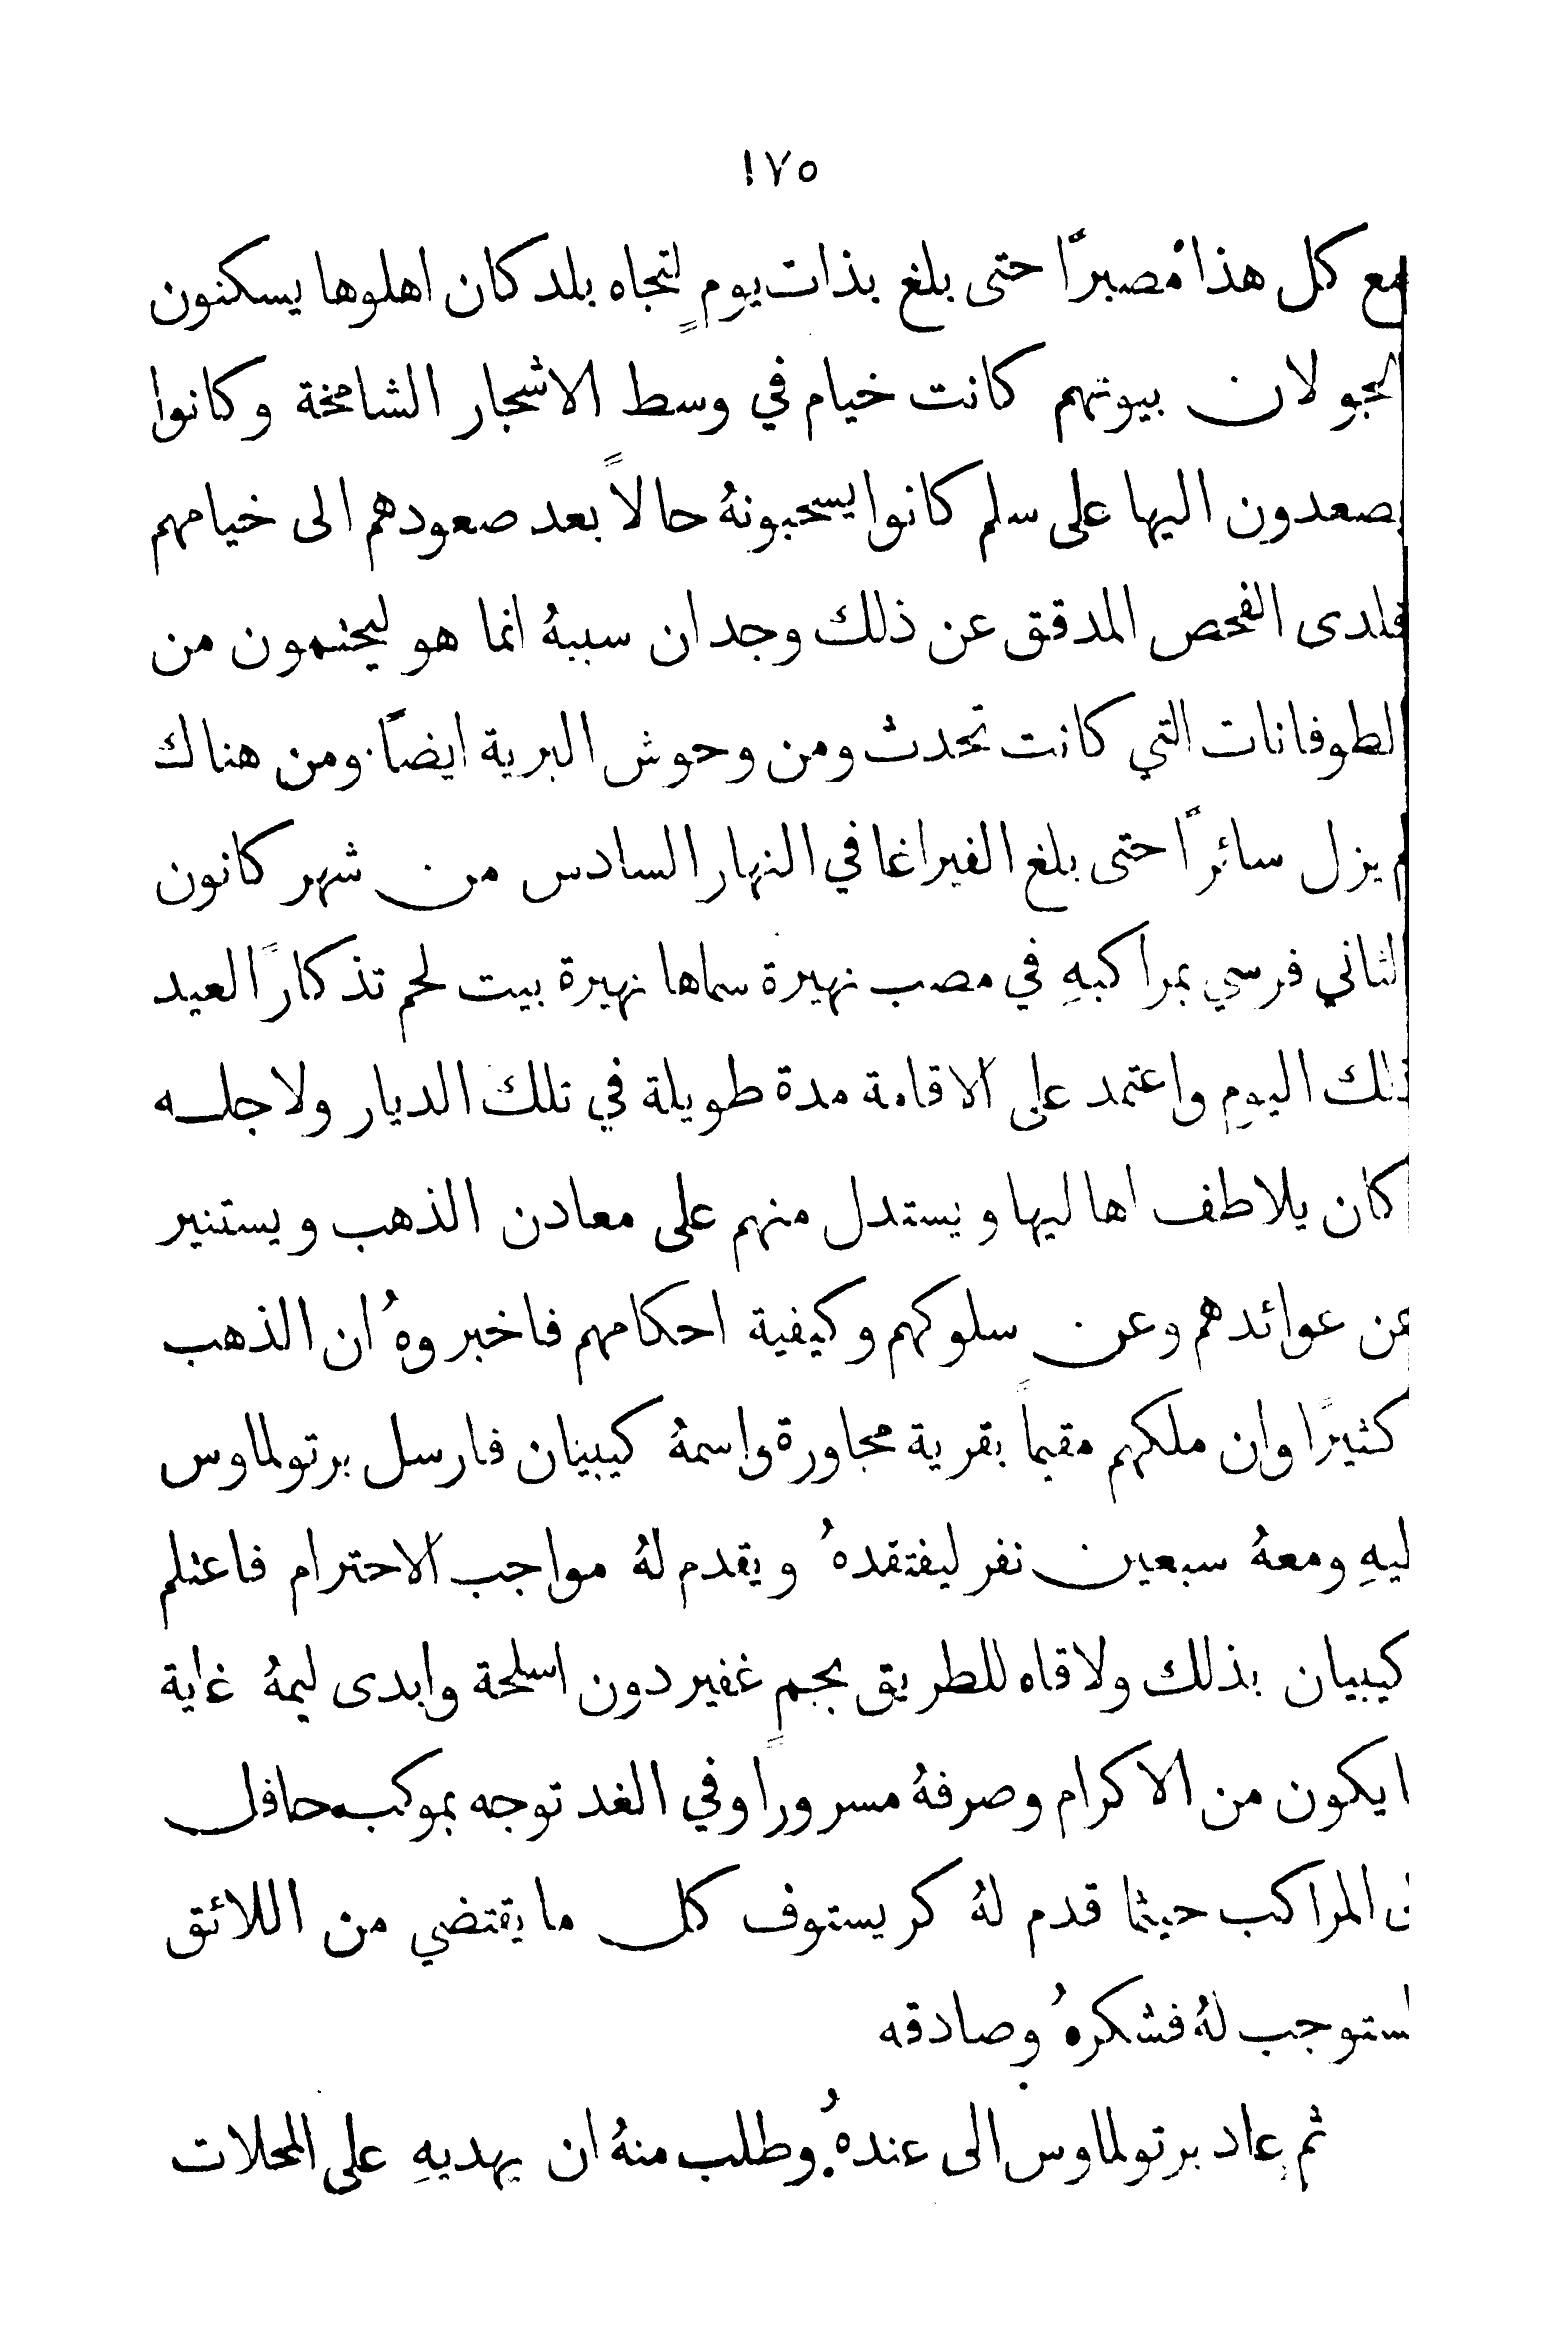 ١٧٥
مع كل هذا مصبرًا حتى بلغ بذات يومٍ لتجاه بلد كان اهلوها يسكنون
لجو لان بيوتهم كانت خيام في وسط الاشجار الشامخة وكانوا
يصعدون اليها على سلم كانوا يسحبونهُ حالاً بعد صعودهم الى خيامهم
فلدى الفحص المدقق عن ذلك وجد ان سببهُ انما هو ليحتمون من
لطوفانات التي كانت تحدث ومن وحوش البرية ايضًا. ومن هناك
م يزل سائرًا حتى بلغ الفيراغا في النهار السادس من شهر كانون
لثاني فرسي بمراكبهِ في مصب نهيرة سماها نهيرة بيت لحم تذكارًا لعيد
ذلك اليوم واعتمد على الاقامة مدة طويلة في تلك الديار ولاجله
كان يلاطف اهاليها ويستدل منهم على معادن الذهب ويستنير
عن عوائدهم وعن سلوكهم وكيفية احكامهم فاخبروهُ ان الذهب
كثيرًا وان ملكهم مقيماً بقرية مجاورة واسمهُ كيبيان فارسل برتولماوس
ليهِ ومعهُ سبعين نفر ليفتقدهُ ويقدم لهُ مواجب الاحترام فاعتلم
كيبيان بذلك ولاقاه للطريق بجمٍ غفير دون اسلحة وابدى ليمهُ غاية
ا يكون من الاكرام وصرفهُ مسروراً وفي الغد توجه بموكب حافل
ن المراكب حيثما قدم لهُ كريستوف كل ما يقتضي من اللائق
لستوجب لهُ فشكرهُ وصادقه
ثم عاد برتولماوس الى عندهُ. وطلب منهُ ان يهديهِ على المحلات